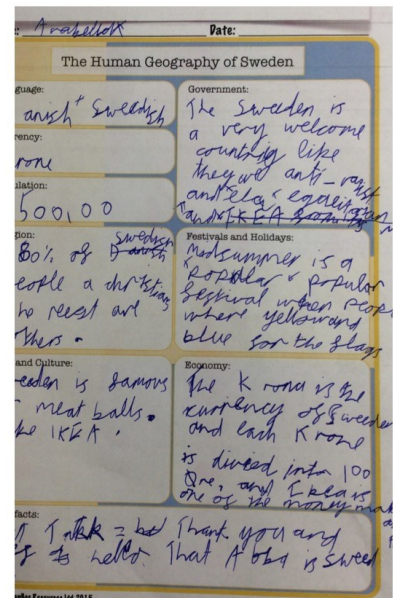 : Arabella K Date:
The Human Geography of Sweden
guage:
anish + Sweedish
rency:
rone
ulation:
500,00
gion:
80% of swedish
eople a christians
he reest are
thers.
and Culture:
eeden is famous
meat balls.
he IKEA.
Government:
The Sweden is
a very welcome
country like
they we anti-
and
and IKEA
Festivals and Holidays:
Midsummer is a
popular
festival when peop
where yellow and
blue for the flags
Economy:
The Krona is the
currency of Sweeden
and each Krone
is divied into 100
Ore, and Ikea is
one of the money mak
facts:
Tak = Thank you and
hello. That Abba is Sweed